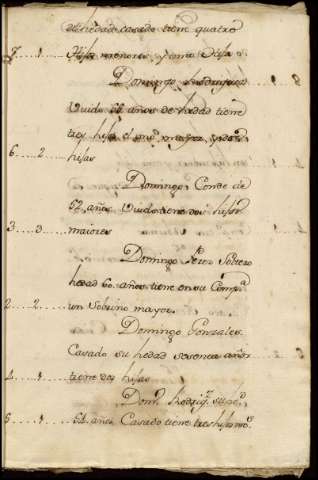 de hedad casado tiene quatro
7 .. 1 .... Hijos menores y una Hija
Domingo Rodriguez
Viudo 52 años de hedad tiene
tres hijos el uno mayor, y dos
6 .. 2 ...... hijas
Domingo Conde de
52 años Viudo tiene dos hijos
3 .. 3 ...... maiores
Domingo Perez Soltero
hedad 60 años tiene en su Comp.ª
2 .. 2 ...... un Sobrino mayor
Domingo Gonzales
Casado su hedad sesenta años
4 ... 1 ..... tiene dos hijas
Dom.º Rodrig.z
5 ... 1 ..... 54 años Casado tiene tres hijos